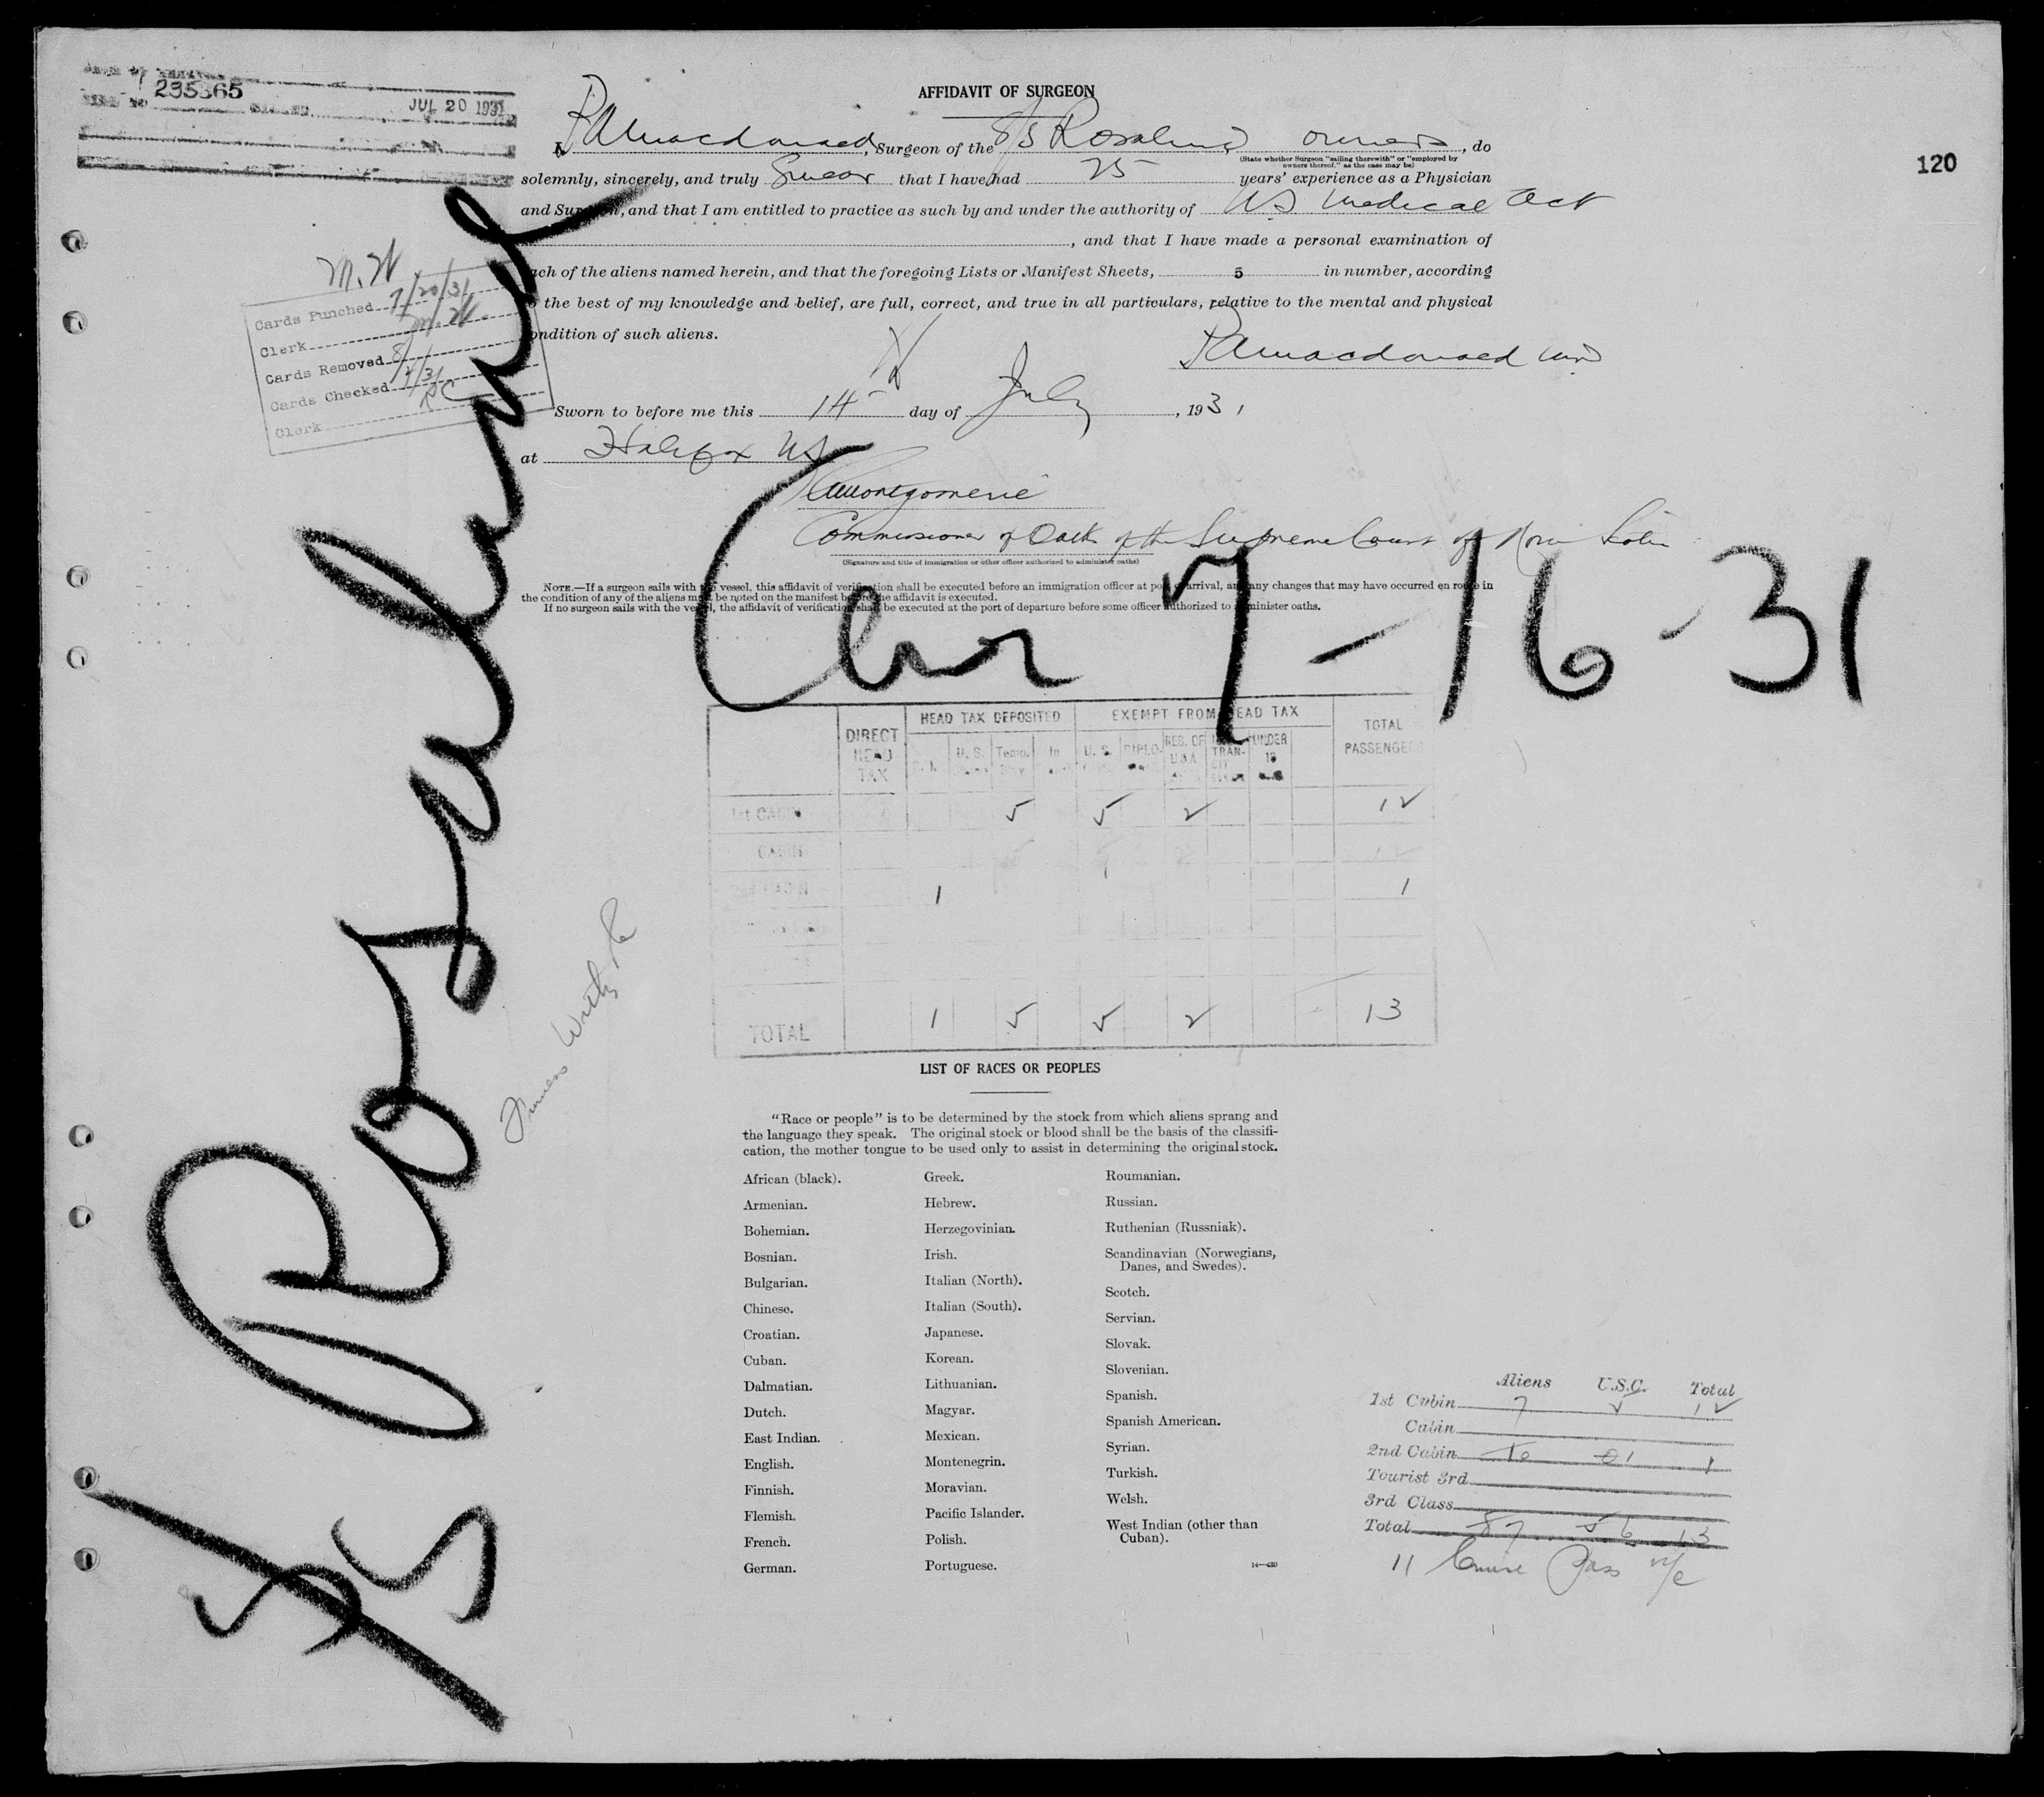 235365
JUL 20 1931
120
AFFIDAVIT OF SURGEON
I, RAMacdonald, Surgeon of the S/S Rosalind owners, do
(State whether Surgeon "sailing therewith" or "employed by
owners thereof," as the case may be)
solemnly, sincerely, and truly Swear that I have had 25 years' experience as a Physician
and Surgeon, and that I am entitled to practice as such by and under the authority of NS Medical Act
, and that I have made a personal examination of
each of the aliens named herein, and that the foregoing Lists or Manifest Sheets, 5 in number, according
to the best of my knowledge and belief, are full, correct, and true in all particulars, relative to the mental and physical
condition of such aliens.
RAMacdonald MD
Sworn to before me this 14 day of July, 1931
at Halifax NS
Montgomerie
Commissioner of Oaths of the Supreme Court of Nova Scotia
(Signature and title of immigration or other officer authorized to administer oaths)
NOTE.—If a surgeon sails with the vessel, this affidavit of verification shall be executed before an immigration officer at port of arrival, and any changes that may have occurred en route in
the condition of any of the aliens must be noted on the manifest before the affidavit is executed.
If no surgeon sails with the vessel, the affidavit of verification shall be executed at the port of departure before some officer authorized to administer oaths.
M.W
Cards Punched 7/20/31
Clerk M.W.
Cards Removed
Cards Checked
Clerk
S/S Rosalind
7-16-31
Furness Withy Co
HEAD TAX DEPOSITED EXEMPT FROM HEAD TAX
DIRECT HEAD TAX U.S. Temp. In U.S. DIPLO- RES. OF U.S.A. TRAN- UNDER 16 TOTAL PASSENGERS
1st CABIN 5 5 2 12
CABIN
CABIN 1 1
TOTAL 1 5 5 2 13
LIST OF RACES OR PEOPLES
"Race or people" is to be determined by the stock from which aliens sprang and
the language they speak. The original stock or blood shall be the basis of the classifi-
cation, the mother tongue to be used only to assist in determining the original stock.
African (black).
Armenian.
Bohemian.
Bosnian.
Bulgarian.
Chinese.
Croatian.
Cuban.
Dalmatian.
Dutch.
East Indian.
English.
Finnish.
Flemish.
French.
German.
Greek.
Hebrew.
Herzegovinian.
Irish.
Italian (North).
Italian (South).
Japanese.
Korean.
Lithuanian.
Magyar.
Mexican.
Montenegrin.
Moravian.
Pacific Islander.
Polish.
Portuguese.
Roumanian.
Russian.
Ruthenian (Russniak).
Scandinavian (Norwegians,
Danes, and Swedes).
Scotch.
Servian.
Slovak.
Slovenian.
Spanish.
Spanish American.
Syrian.
Turkish.
Welsh.
West Indian (other than
Cuban).
14—430
Aliens U.S.C. Total
1st Cabin 7 5 12
Cabin
2nd Cabin 1 0 01 1
Tourist 3rd
3rd Class
Total 8 7 5 6 13
11 Cruise Pass